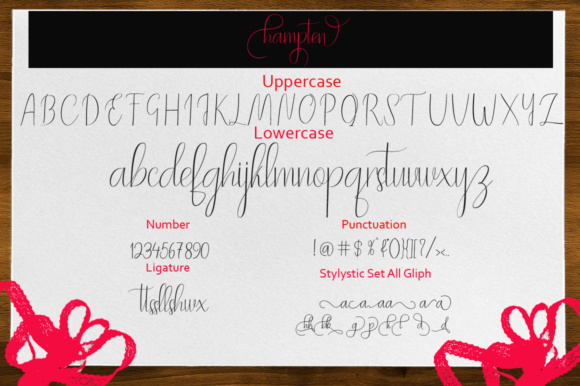 hampten
Uppercase
ABCDEFGHIJKLMNOPQRSTUVWXYZ
Lowercase
abcdefghijklmnopqrstuvwxyz
Number
1234567890
Punctuation
Ligature
Stylystic Set All Gliph